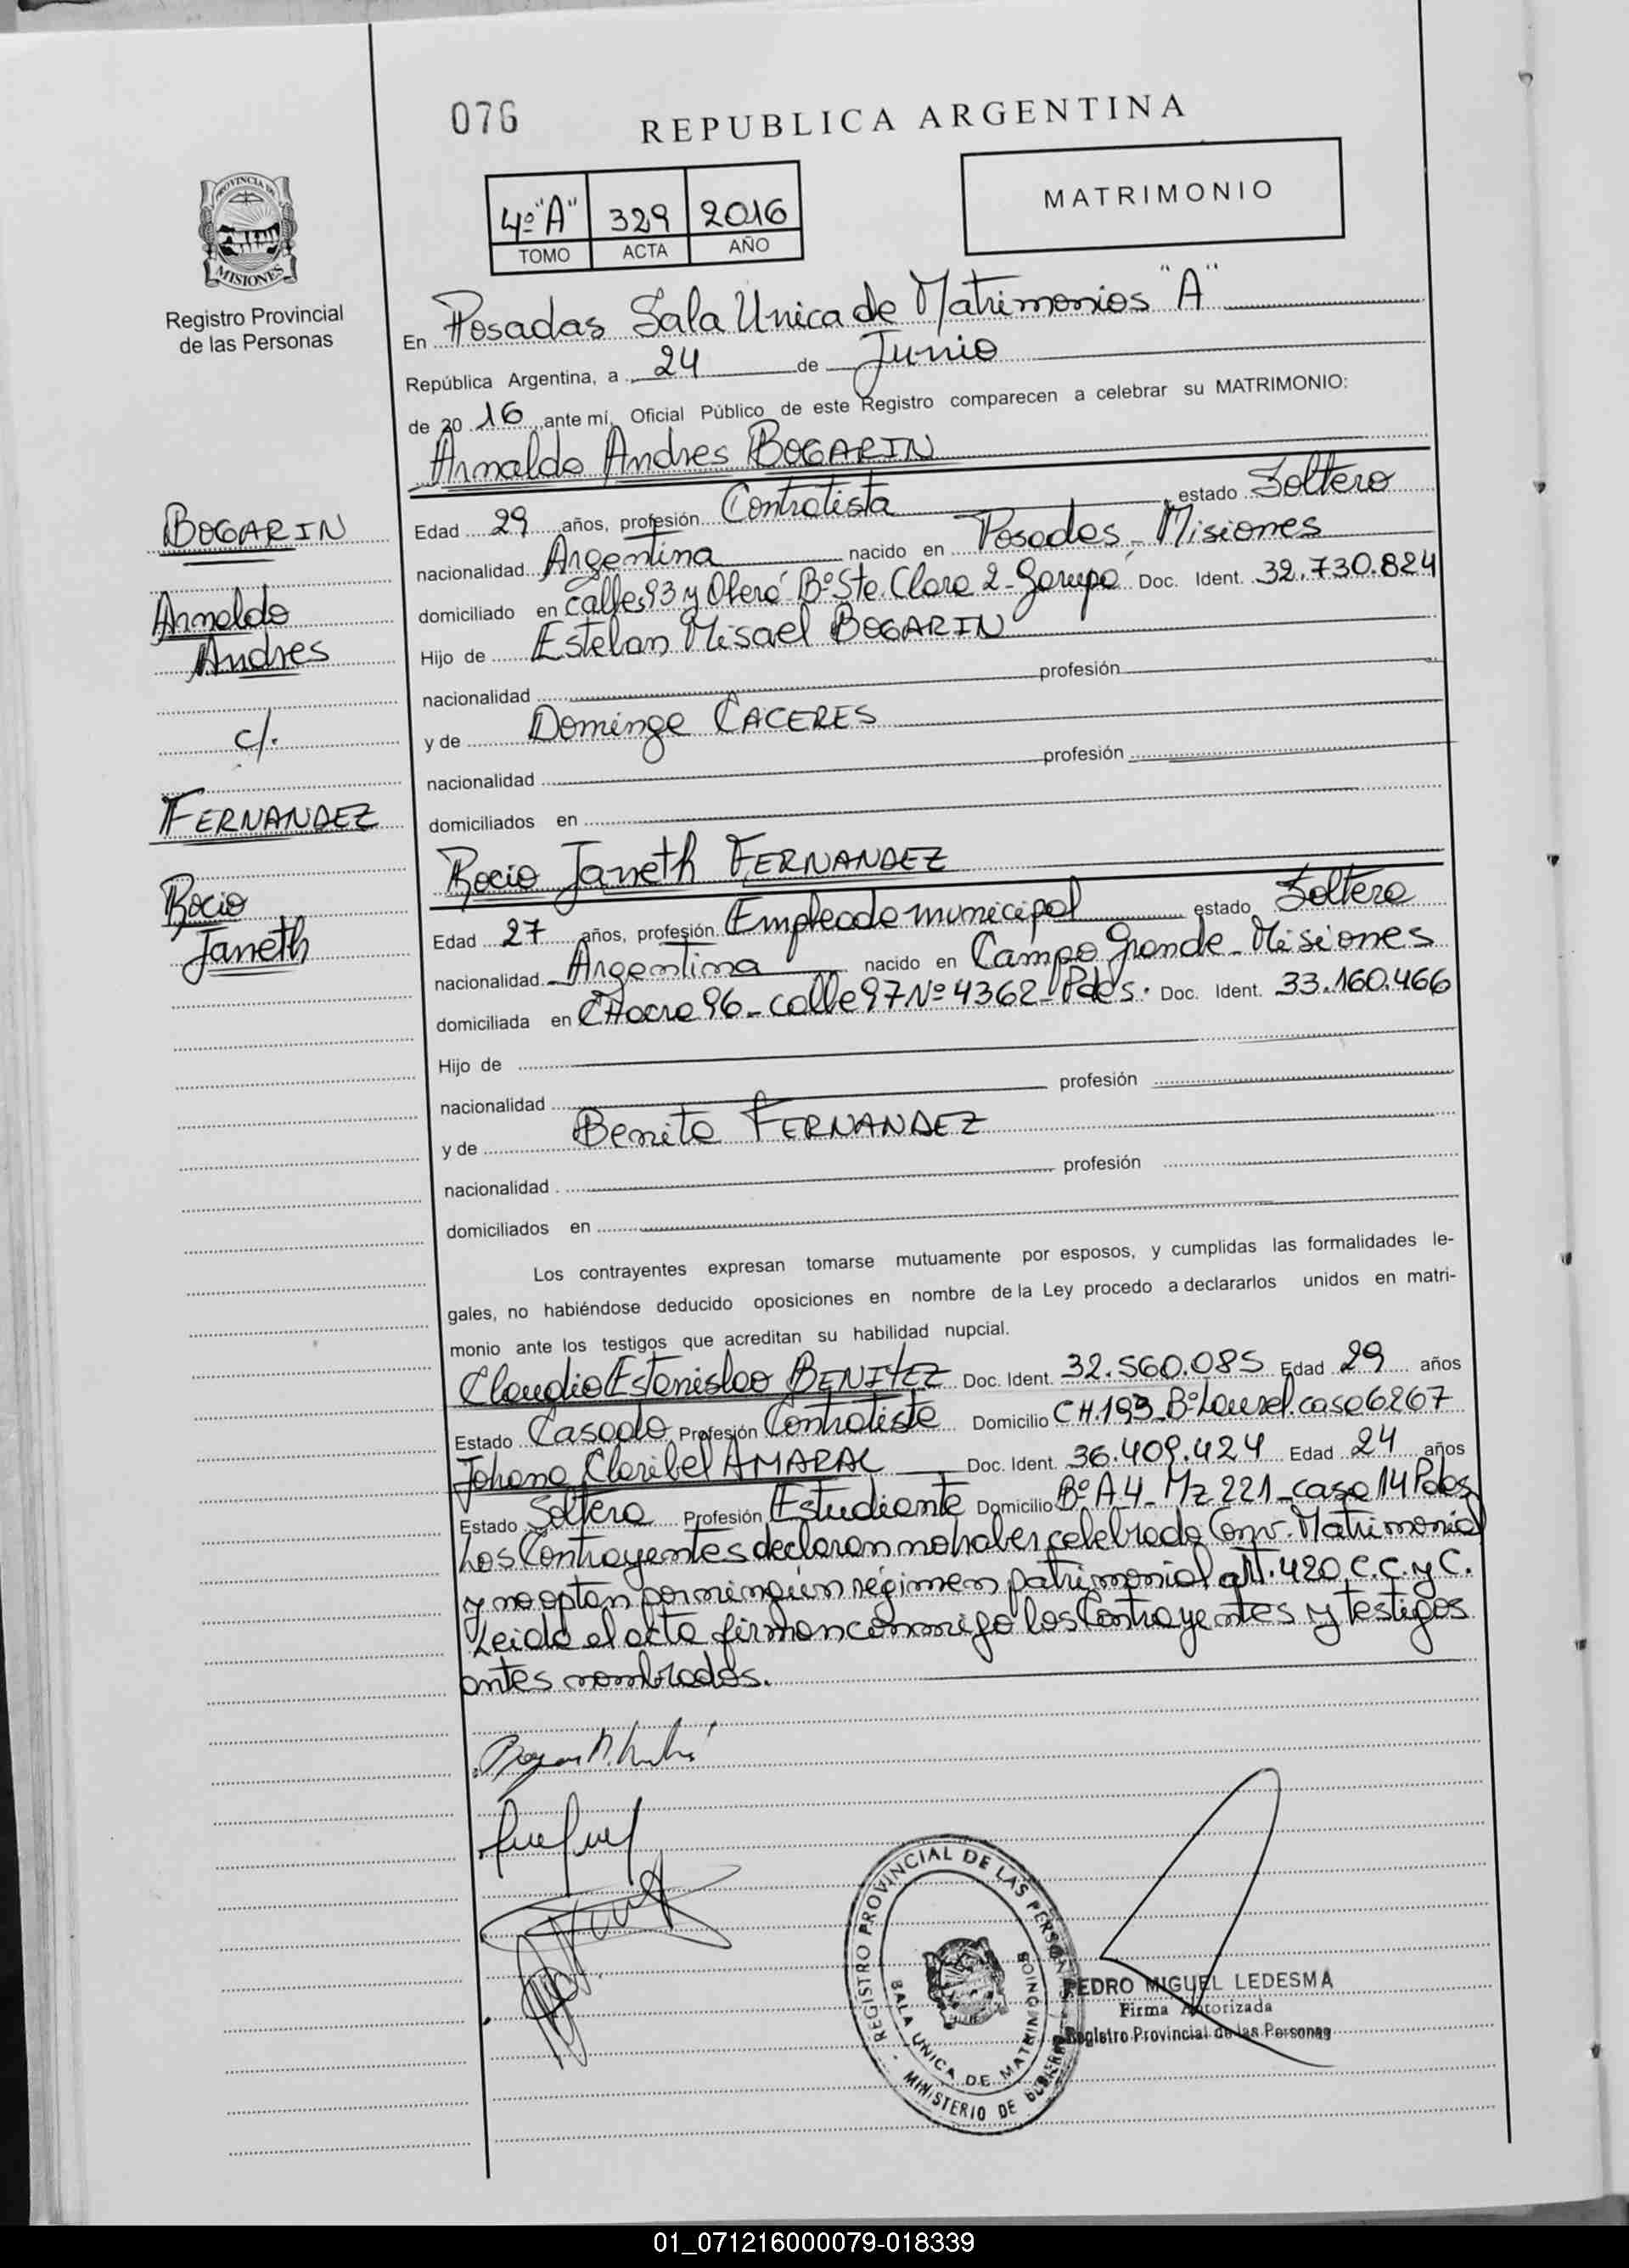 076
REPUBLICA ARGENTINA
PROVINCIA DE
MISIONES
Registro Provincial
de las Personas
4º "A" 329 2016
TOMO ACTA AÑO
MATRIMONIO
En Posadas Sala Unica de Matrimonios "A"
República Argentina, a 24 de Junio
de 20 16 ante mí, Oficial Público de este Registro comparecen a celebrar su MATRIMONIO:
Arnaldo Andres BOGARIN
BOGARIN
Arnaldo
Andres
c/.
FERNANDEZ
Rocio
Janeth
Edad 29 años, profesión Contratista estado Soltero
nacionalidad Argentina nacido en Posadas, Misiones
domiciliado en calles 93 y Oberá Bº Sta. Clara 2 - Garupá Doc. Ident. 32.730.824
Hijo de Esteban Misael BOGARIN
nacionalidad profesión
y de Dominga CACERES
nacionalidad profesión
domiciliados en
Rocio Janeth FERNANDEZ
Edad 27 años, profesión Empleada municipal estado Soltera
nacionalidad Argentina nacido en Campo Grande - Misiones
domiciliada en CHacra 96 - calle 97 Nº 4362 - Pdas. Doc. Ident. 33.160.466
Hijo de
nacionalidad profesión
y de Benita FERNANDEZ
nacionalidad profesión
domiciliados en
Los contrayentes expresan tomarse mutuamente por esposos, y cumplidas las formalidades le-
gales, no habiéndose deducido oposiciones en nombre de la Ley procedo a declararlos unidos en matri-
monio ante los testigos que acreditan su habilidad nupcial.
Claudio Estanislao BENITEZ Doc. Ident. 32.560.085 Edad 29 años
Estado Casado Profesión Contratista Domicilio CH.193 - Bº Laurel. casa 6267
Johana Claribel AMARAL Doc. Ident. 36.409.424 Edad 24 años
Estado Soltera Profesión Estudiante Domicilio Bº A-4 - Mz 221 - casa 14 Pdas
Los Contrayentes declaran no haber celebrado Conv. Matrimonial
y no optan por ningún régimen patrimonial art. 420 C.C. y C.
Leida el acta firman conmigo los Contrayentes y testigos
antes nombrados.
REGISTRO PROVINCIAL DE LAS PERSONAS
SALA UNICA DE MATRIMONIOS
MINISTERIO DE GOBIERNO
PEDRO MIGUEL LEDESMA
Firma Autorizada
Registro Provincial de las Personas
01_071216000079-018339